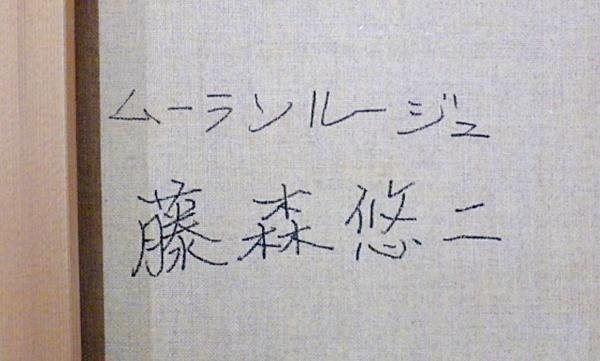 ムーランルージュ
藤森悠二